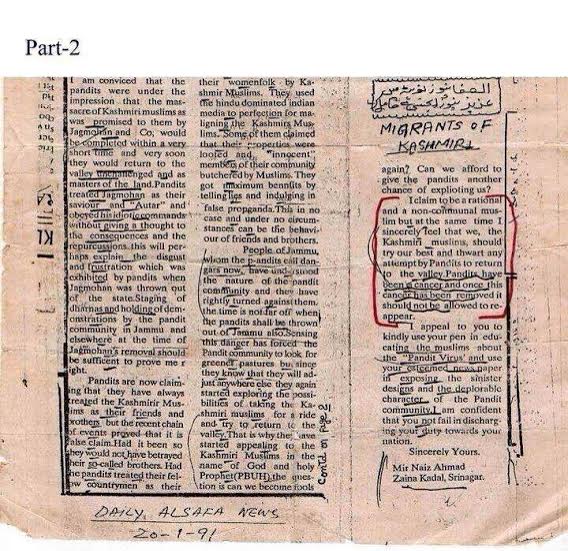 Part-2
I am conviced that the
pandits were under the
impression that the mas-
sacre of Kashmiri muslims as
was promised to them by
Jagmohan and Co, would
be completed within a very
short time and very soon
they would return to the
valley unchallenged and as
masters of the land. Pandits
treated Jagmohan as their
saviour and "Autar" and
obeyed his idiotic commands
without giving a thought to
the consequences and the
repurcussions. this will per-
haps explain the disgust
and frustration which was
exhibited by pandits when
Jagmohan was thrown out
of the state. Staging of
dharnas and holding of dem
onstrations by the pandit
community in Jammu and
elsewhere at the time of
Jagmohan's removal should
be sufficient to prove me r
ight.
Pandits are now claim-
ing that they have always
treated the Kashmirir Mus-
lims as their friends and
brothers but the recent chain
of events proved that it is
false claim. Had it been so
they would not have betrayed
their so-called brothers. Had
the pandits treated their fel-
low countrymen as their
their womenfolk by Ka-
shmir Muslims. They used
the hindu dominated indian
media to perfection for ma-
ligning the Kashmirs Mus-
lims. Some of them claimed
that their properties were
looted and "innocent"
members of their community
butchered by Muslims. They
got maximum bennfits by
telling lies and indulging in
false propaganda. This in no
case and under no circum-
stances can be the behavi-
our of friends and brothers.
People of Jammu,
whom the pandits call dan-
gars now, have understood
the nature of the pandit
community and they have
rightly turned against them.
the time is not far off when
the pandits shall be thrown
out of Jammu also. Sensing
this danger has forced the
Pandit community to look for
greener pastures but since
they know that they will ad-
just anywhere else they again
started exploring the possi-
bilities of taking the Ka-
shmiri muslims for a ride
and try to return to the
valley. That is why they have
started appealing to the
Kashmiri Muslims in the
name of God and holy
Prophet(PBUH). the ques-
tion is can we become fools
Contd on page 2
MIGRANTS OF
KASHMIR
again? Can we afford to
give the pandits another
chance of explioting us?
I claim to be a rational
and a non-communal mus-
lim but at the same time I
sincerely feel that we, the
Kashmiri muslims, should
try our best and thwart any
attempt by Pandits to return
to the valley. Pandits have
been a cancer and once this
cancer has been removed it
should not be allowed to re-
appear.
I appeal to you to
kindly use your pen in edu-
cating the muslims about
the "Pandit Virus" and use
your esteemed news paper
in exposing the sinister
designs and the deplorable
character of the Pandit
community. I am confident
that you not fail in discharg-
ing your duty towards your
nation.
Sincerely Yours.
Mir Naiz Ahmad
Zaina Kadal, Srinagar.
DAILY, ALSAFA NEWS
20-1-91